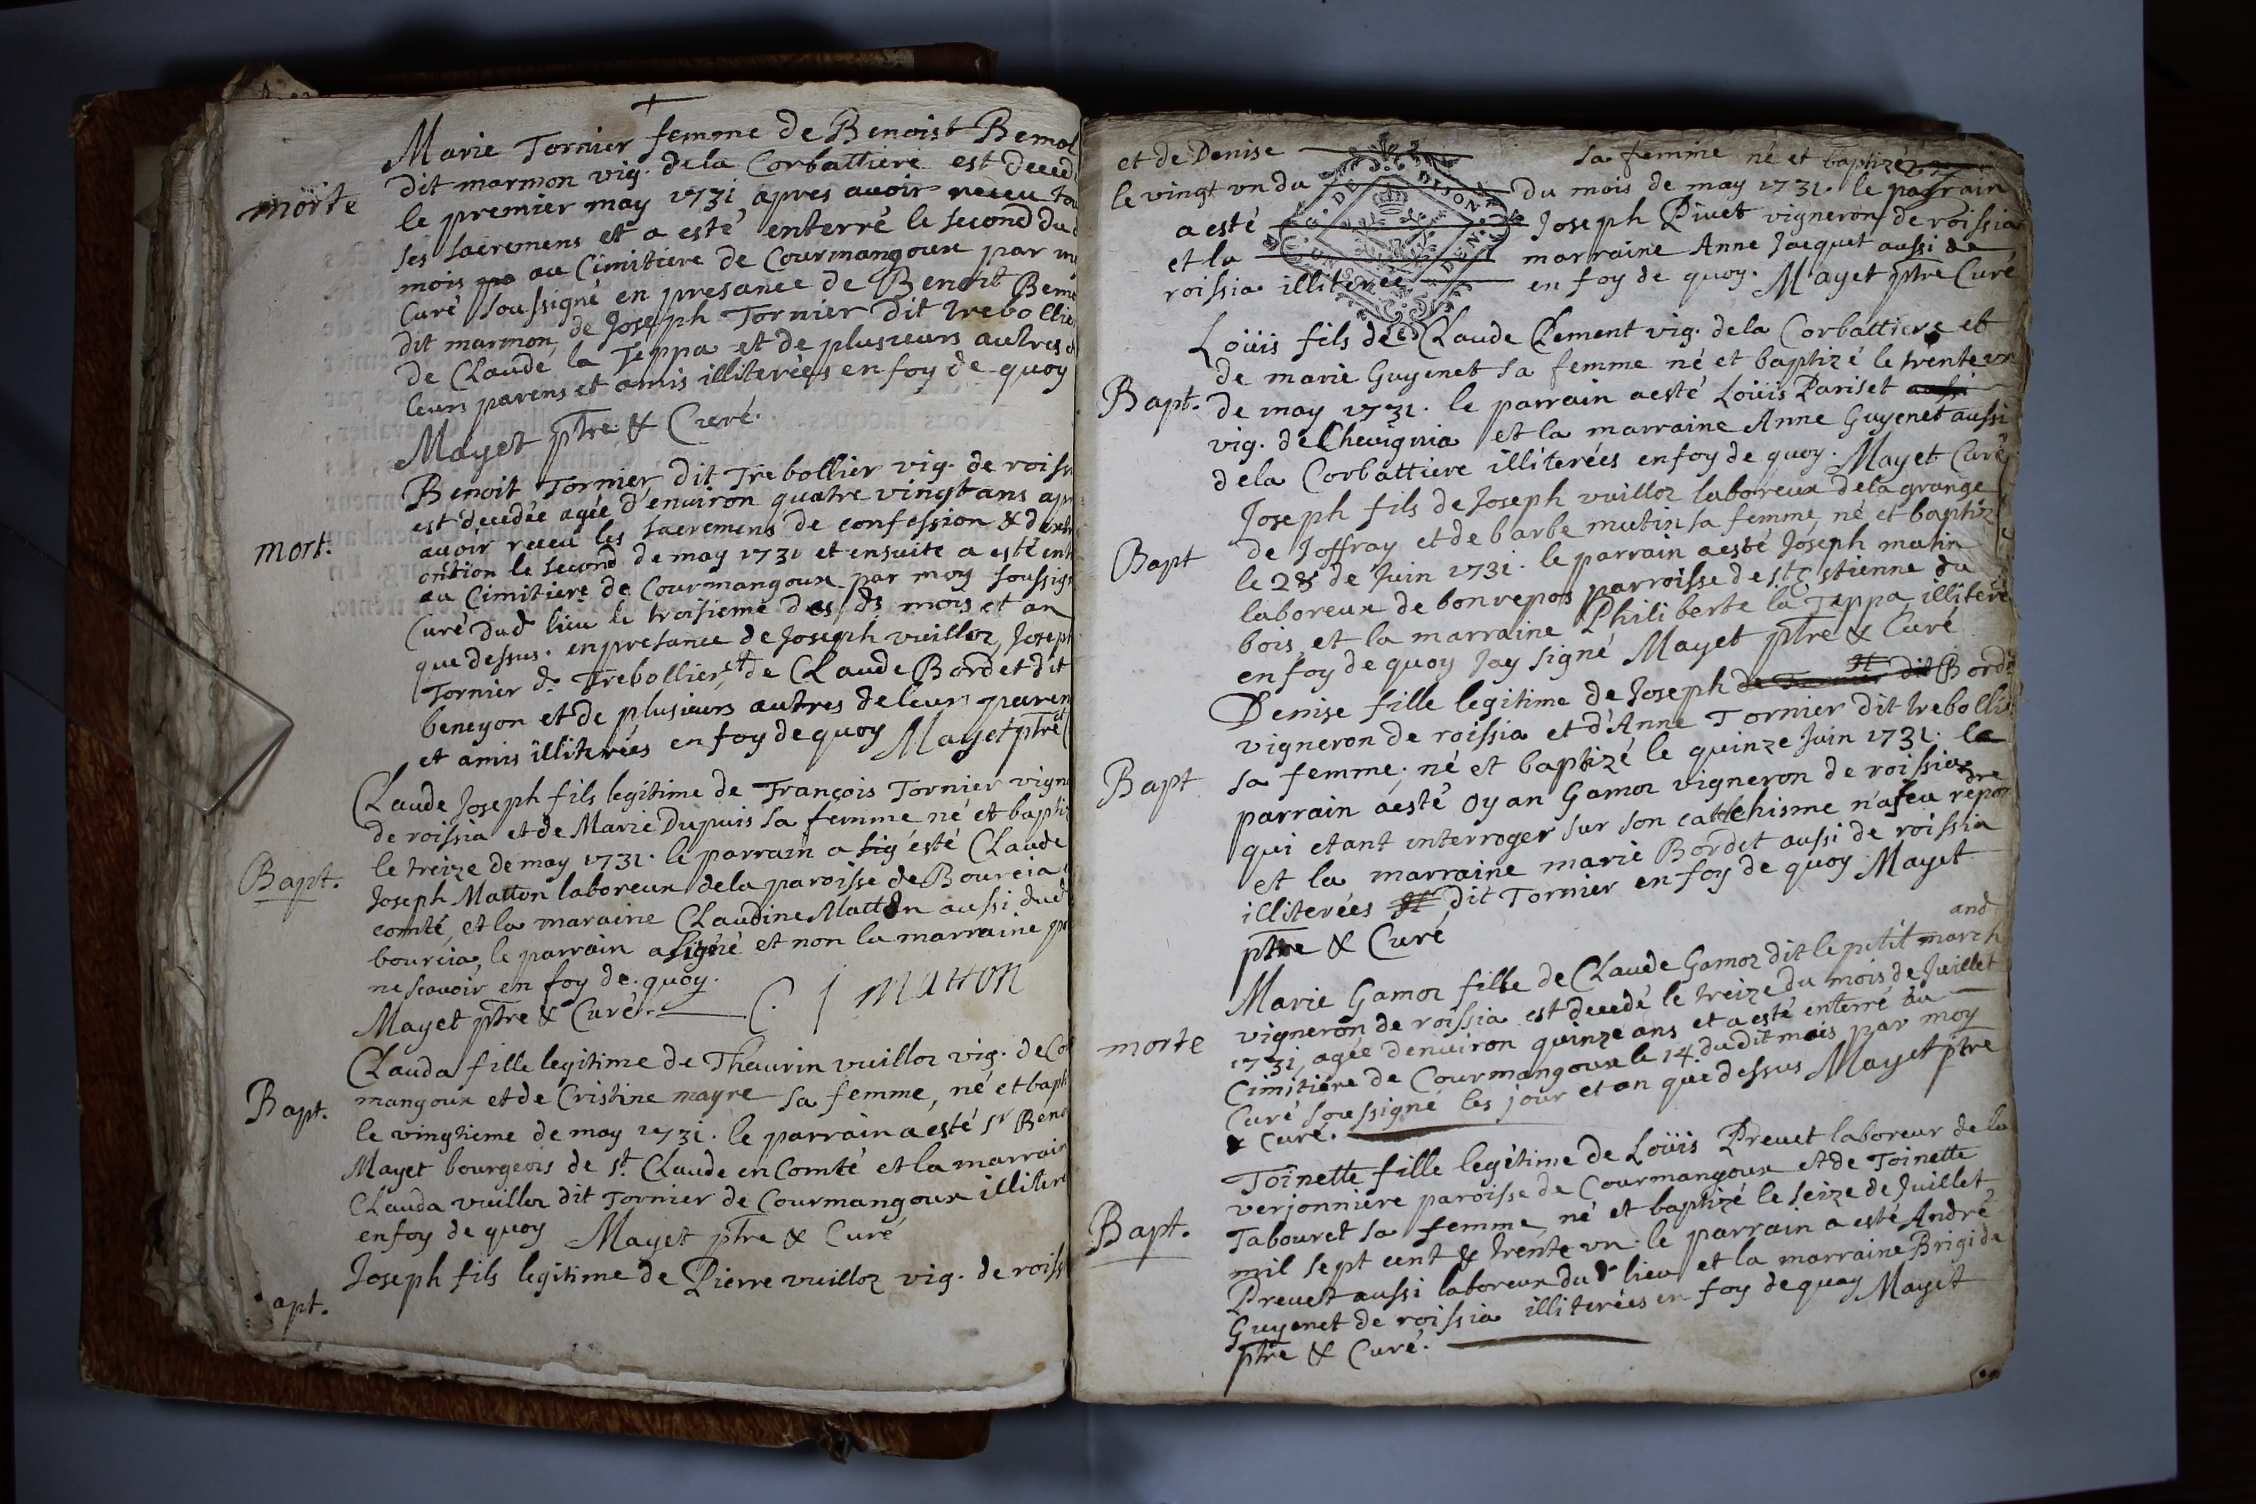 Marie Tornier femme de Benoist Bemol
dit marmon vig. dela Corbattiere est deced
morte
le premier may 1731 apres avoir receu tou
ses sacremens et a esté enterré le second dud
mois au Cimitiere de Courmangoux par m
Curé soussigné en presance de Benoit Bemo
dit marmon, de Joseph Tornier dit trebollie
de Claude la Teppa et de plusieurs autres d
leurs parens et amis illiterées en foy de quoy
Mayet ptre & Curé.
Benoit Tornier dit Trebollier vig. de roiss
est decedée agée d'environ quatre vingt ans apr
mort.
avoir receu les sacremens de confession & d'extr
ontion le second de may 1731 et ensuite a esté ent
au Cimitiere de Courmangoux par moy soussig
Curé dud lieu le troisieme des ds mois et an
que dessus. en presance de Joseph vuilloz, Josep
Tornier d. Trebollier, et de Claude Bordet dit
beneyon et de plusieurs autres de leurs paren
et amis illiterées en foy de quoy Mayet ptre et
Claude Joseph fils legitime de François Tornier vign
de roissia et de Marie Dupuis sa femme né et bapti
Bapt.
le treize de may 1731. le parrain a sig ésté Claude
Joseph Matton laboreux dela paroisse de Boureia
comté, et la maraine Claudine Matton aussi dud
boureia, le parrain a signé et non la marraine p
ne scavoir en foy de quoy.
Mayet ptre & Curé. C. J matton
Clauda fille legitime de Thaurin vuilloz vig. de Co
mangoux et de Cristine mayre sa femme, né et bapti
Bapt.
le vingtieme de may 1731. le parrain a esté sr Beno
Mayet bourgeois de st. Claude en Comté et la marrain
Clauda vuilloz dit Tornier de Courmangoux illiter
en foy de quoy Mayet ptre & Curé
Joseph fils legitime de Pierre vuilloz vig. de roiss
apt.
et de Denise sa femme né et baptizé
le vingt un du du mois de may 1731. le parrain
a esté Joseph Pivet vigneron de roissia
et la marraine Anne Jacquet aussi de
roissia illiterée en foy de quoy. Mayet ptre Curé
Loüis fils de Claude Clement vig. dela Corbattiere et
de marie Guyenet sa femme né et baptizé le trente un
Bapt.
de may 1731. le parrain a esté Loüis Pariset aussi
vig. de Chevignia et la marraine Anne Guyenet aussi
dela Corbattiere illiterées en foy de quoy. Mayet Curé
Joseph fils de Joseph vuilloz laboreux dela grange
de Joffray et de barbe mutin sa femme, né et baptiz
Bapt
le 28 de Juin 1731. le parrain a esté Joseph mutin
laboreux de bonrepos parroisse de st. Estienne du
bois et la marraine Philiberte la Teppa, illiteré
en foy de quoy Jay signé Mayet ptre & Curé
Denise fille legitime de Joseph de Tornier dit Bord
vigneron de roissia et d'Anne Tornier dit trebolli
Bapt
sa femme. né et baptizé le quinze Juin 1731. le
parrain a esté Oyan Gamoz vigneron de roissia
qui etant interroger sur son catechisme n'a seu repondre
et la marraine marie Bordet aussi de roissia
illiterées dit Tornier en foy de quoy Mayet
ptre & Curé
Marie Gamoz fille de Claude Gamoz dit le petit marchand
vigneron de roissia est decedé le treize du mois de Juillet
morte
1731, agée denviron quinze ans et a esté enterré au
Cimitiere de Courmangoux le 14. dudit mois par moy
Curé soussigné les jour et an que dessus Mayet ptre
& Curé.
Toinette fille legitime de Loüis Prevet laboreur de la
verjonniere paroisse de Courmangoux et de Toinette
Tabouret sa femme, né et baptizé le seize de Juillet
Bapt.
mil sept cent & trente un. le parrain a esté André
Prevet aussi laboreux dud lieu et la marraine Brigide
Guyenet de roissia illiterées en foy de quoy Mayet
ptre & Curé.